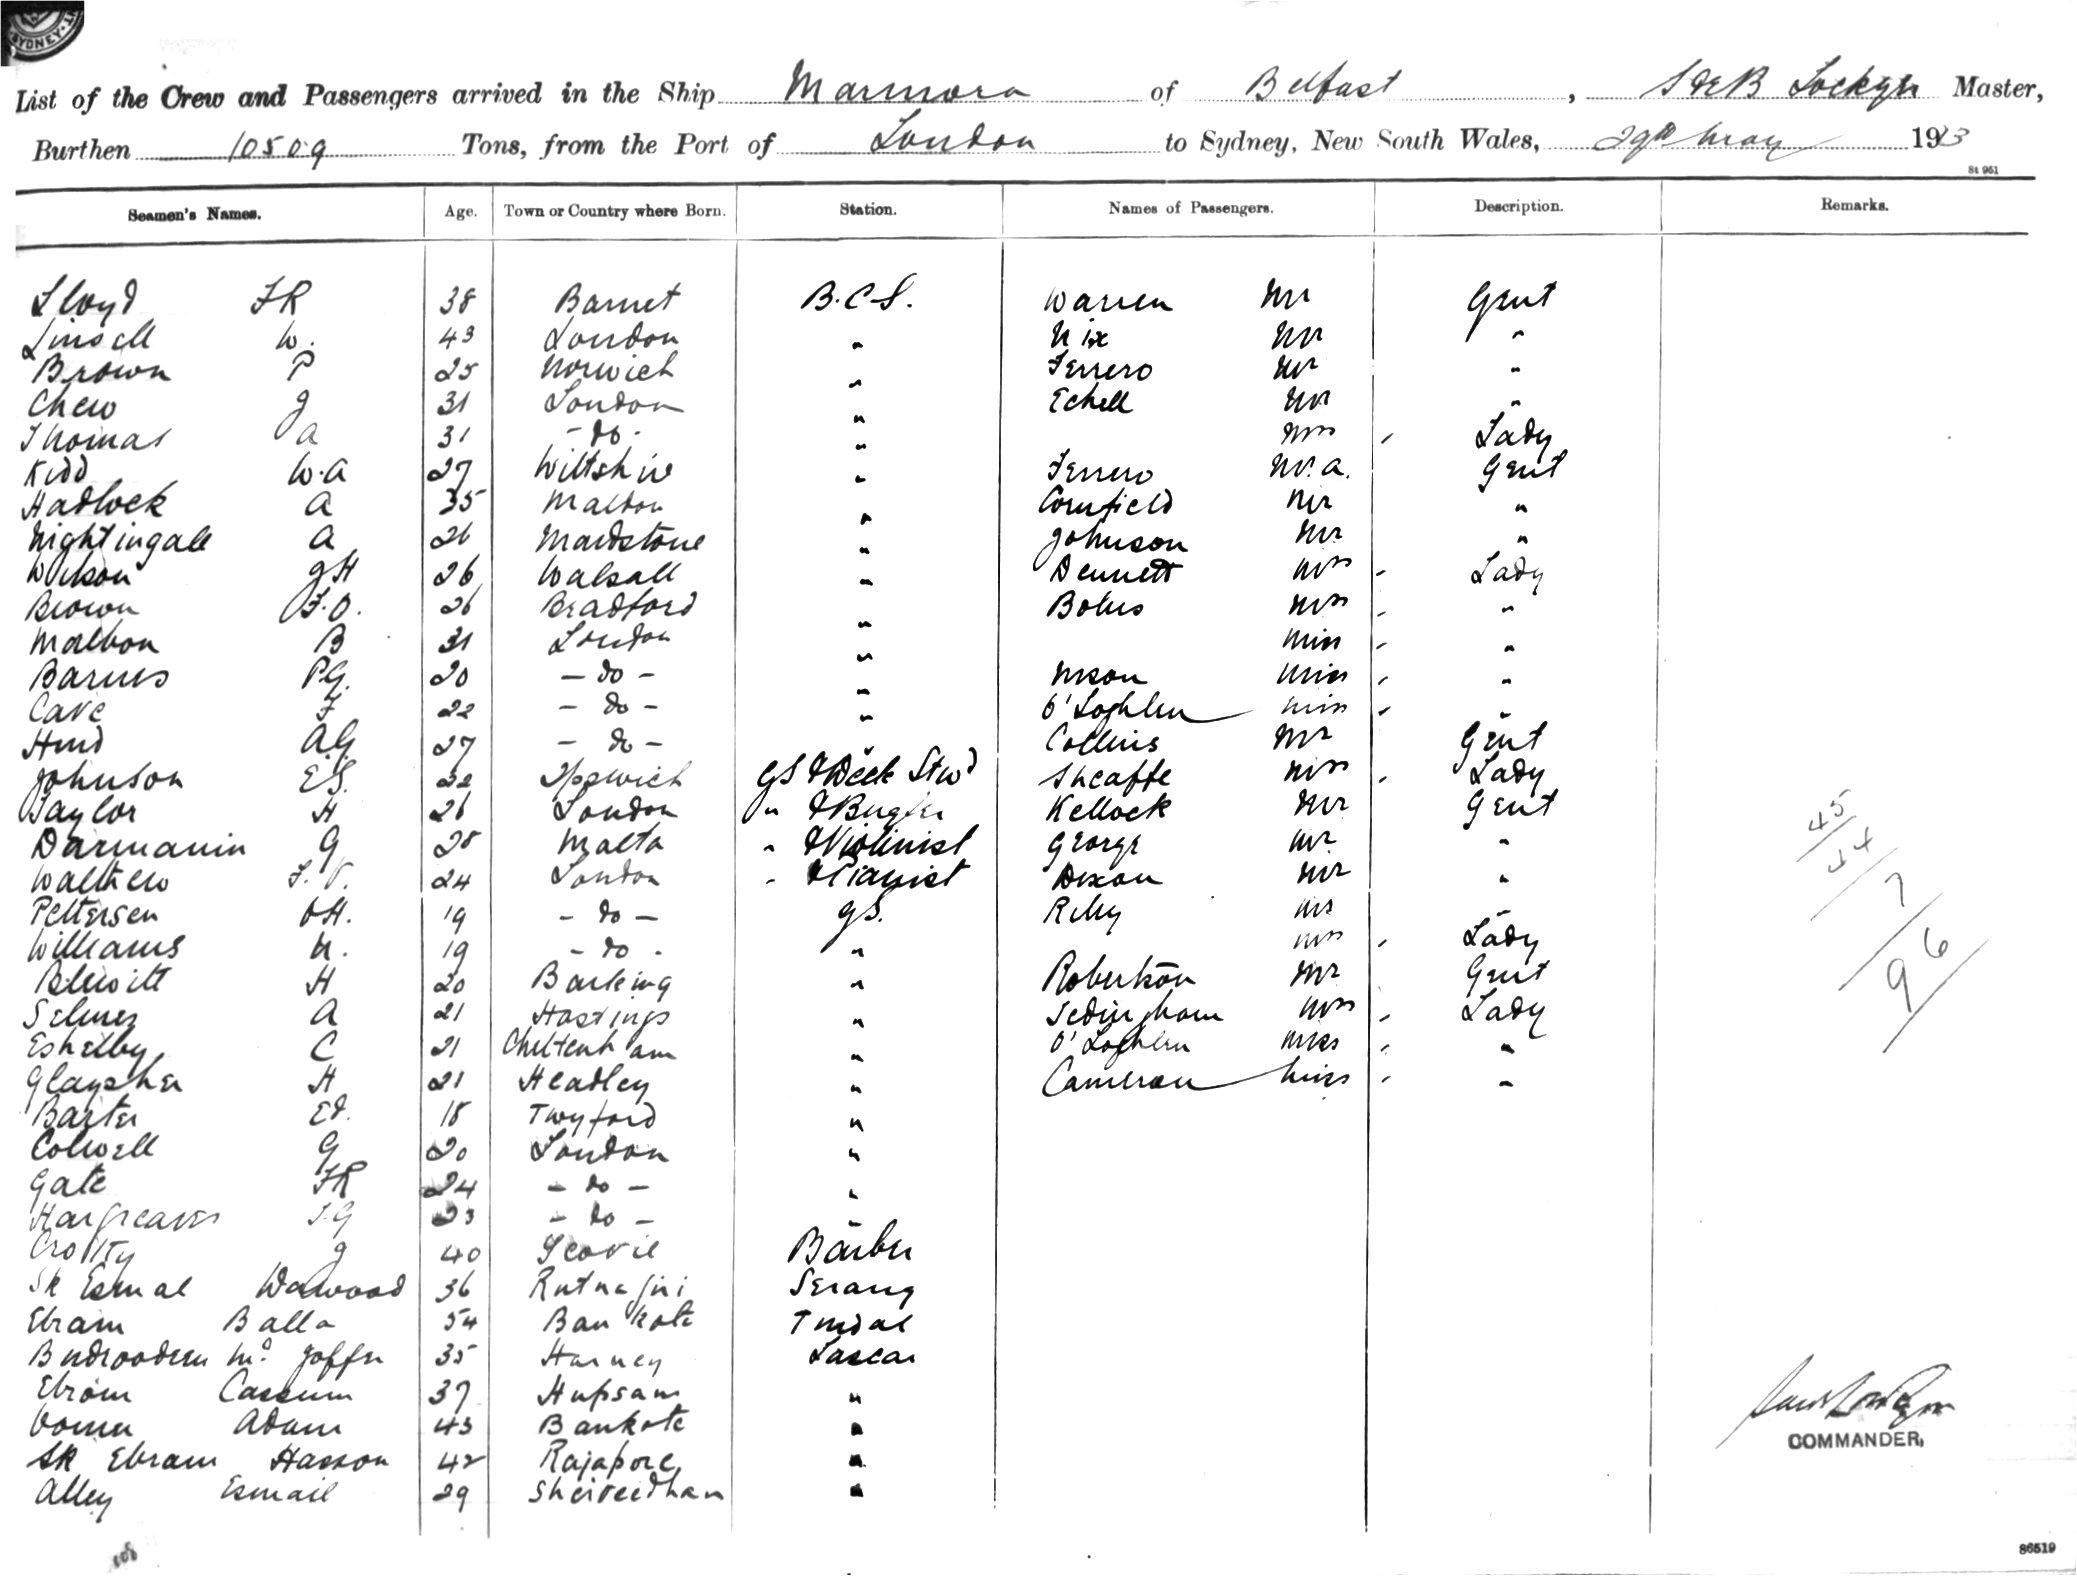 SYDNEY
List of the Crew and Passengers arrived in the Ship Marmora of Belfast, Master,
Burthen 10509 Tons, from the Port of London to Sydney, New South Wales, 29th May 1913
St 951
Seamen's Names. Age. Town or Country where Born. Station. Names of Passengers. Description. Remarks.
Lloyd FR 38 Barnet B.C.S. Warren Mr Gent
Linsell W. 43 London " Nix Mr "
Brown P 25 Norwich " Ferrero Mr "
Chew J 31 London " Echell Mr "
Thomas A 31 - do - " Mrs Lady
Kidd W.A 27 Wiltshire " Ferrero Mr. A. Gent
Hadlock A 35 Maldon " Cornfield Mr "
Nightingale A 26 Maidstone " Johnson Mr "
Wilson JH 26 Walsall " Dennett Mrs Lady
Brown F.O. 26 Bradford " Bolus Mrs "
Malbon B 31 London " Miss "
Barnes PG. 20 - do - " Miss "
Cave F 22 - do - " O'Loghlen Miss "
Hind A.G. 27 - do - " Collins Mr Gent
Johnson E.S. 22 Ipswich GS & Deck Stwd Sheaffe Miss Lady
Taylor H 26 London " & Bugler Kellock Mr Gent
Darmanin G 28 Malta " & Violinist George Mr "
Walthew F.V. 24 London " & Pianist Dixon Mr "
Pettersen OH. 19 - do - GS. Riley Mr "
Williams N. 19 - do - " Mrs Lady
Blewitt H 20 Barking " Robertson Mr Gent
Selmes A 21 Hastings " Tedingham Mrs Lady
Eshelby C 21 Cheltenham " O'Loghlen Miss "
Glaysher H 21 Headley " Cameron Miss "
Baxter Ed. 18 Twyford "
Colwell G 20 London "
Gate FR 24 - do - "
Hargreaves J.G 23 - do - "
Crotty J 40 Yeovil Barber
Sk Esmal Dawood 36 Rutnagiri Serang
Ebram Balla 54 Bankote Tindal
Budroodeen Md. Joffer 35 Harney Lascar
Ebram Cassum 37 Hupsam "
Oomer Adam 43 Bankote "
Sk Ebram Hasson 42 Rajapore "
Alley Esmail 29 "
45
44
7
96
COMMANDER,
86519